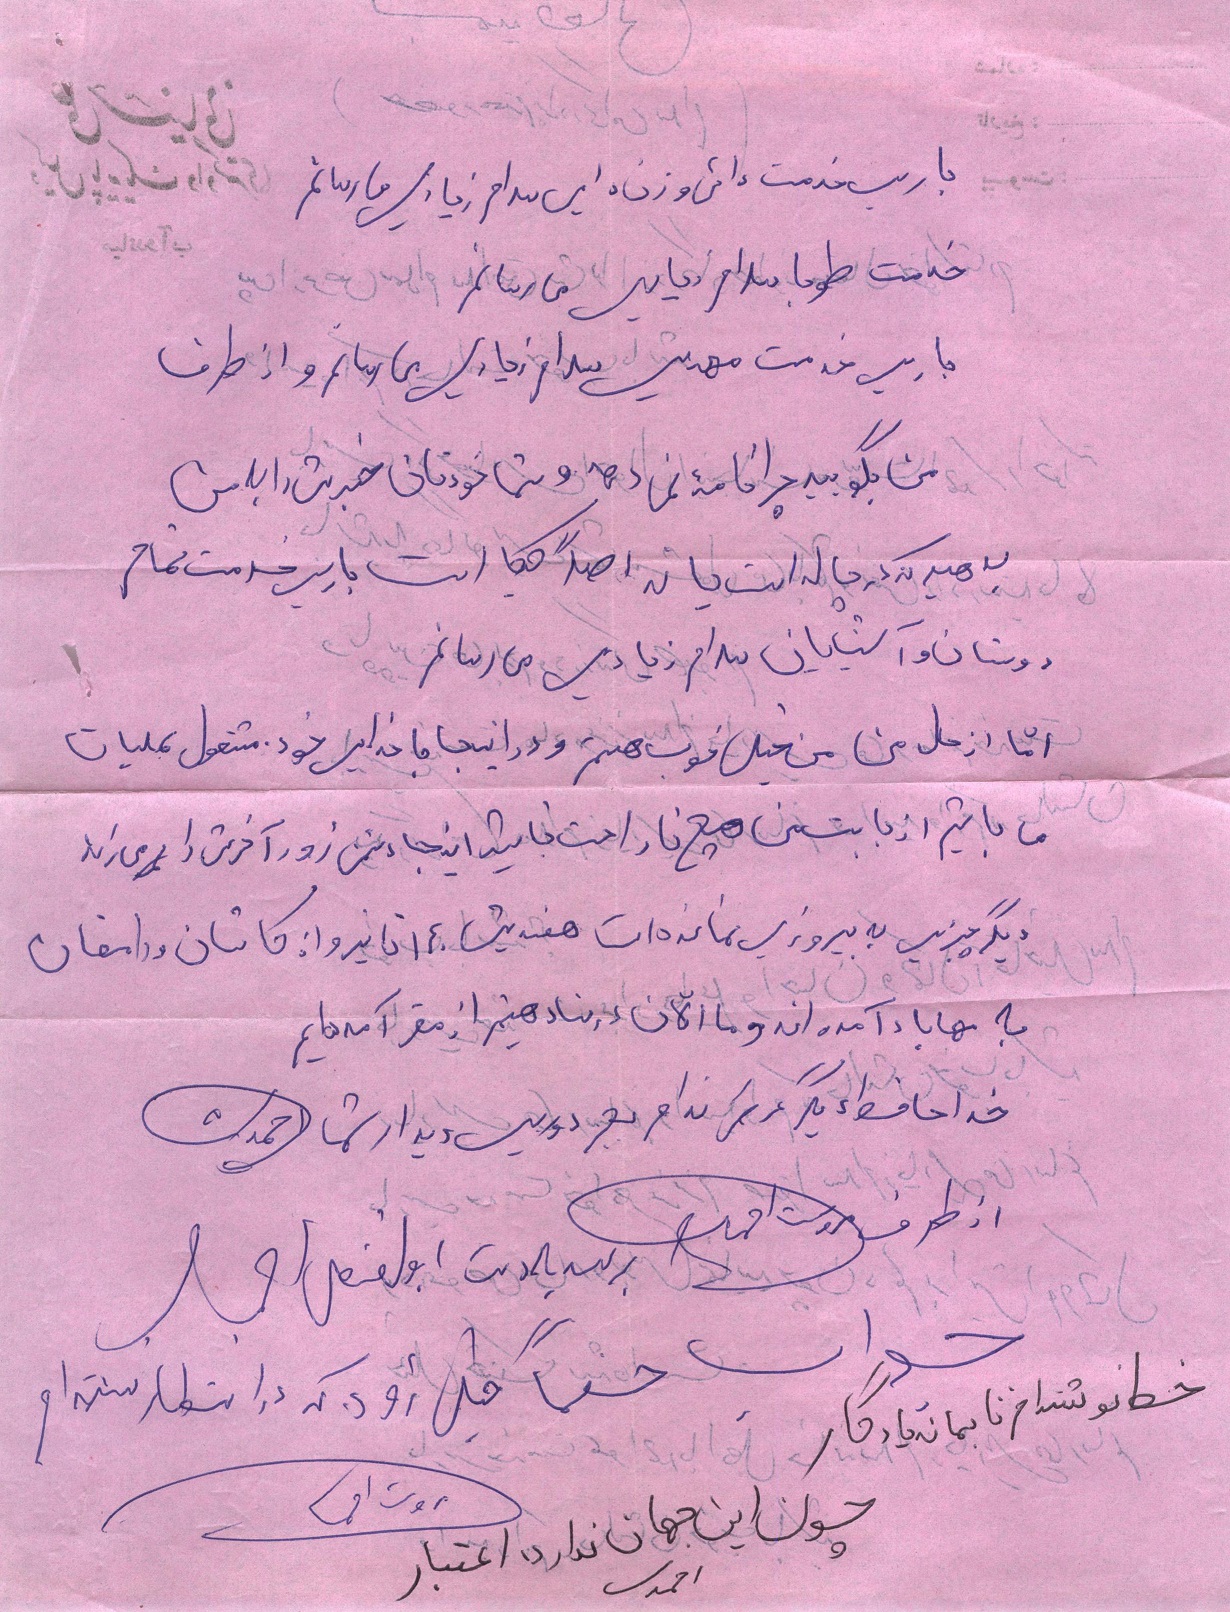 باری خدمت دائی و زن دایی سلام زیادی می رسانم
خدمت طوبا سلام زیادی می رسانم
باری خدمت مهدی سلام زیادی می رسانم و از طرف
من بگویید چرا نامه نمی دهد و شما خودتان خبرش را به من
بدهید که در چاله است یا نه اصلاً کجا است باری خدمت تمام
دوستان و آشنایان سلام زیادی می رسانم
امّا از حال من من خیلی خوب هستم و در اینجا با خدای خود مشغول عملیات
ما باشیم از بابت من هیچ ناراحت نباشید اینجا دشمن زور آخرش را می زند
دیگر چیزی به پیروزی نمانده است هفته پیش ۱۴۰ تا نیرو از کاشان و دامغان
به مهاباد آمده اند و ما الآن در ستاد هستیم از مقر آمده ایم
خداحافظ دیگر عرضی ندارم بجز دوری دیدار شما احمدی
از طرف دوست احمدی برسد بدست ابوالفضل
جواب حتماً خیلی زود که در انتظار نشسته ام
خط نوشتم تا بماند یادگار
دوست احمدی
چون این جهان ندارد اعتبار
احمدی